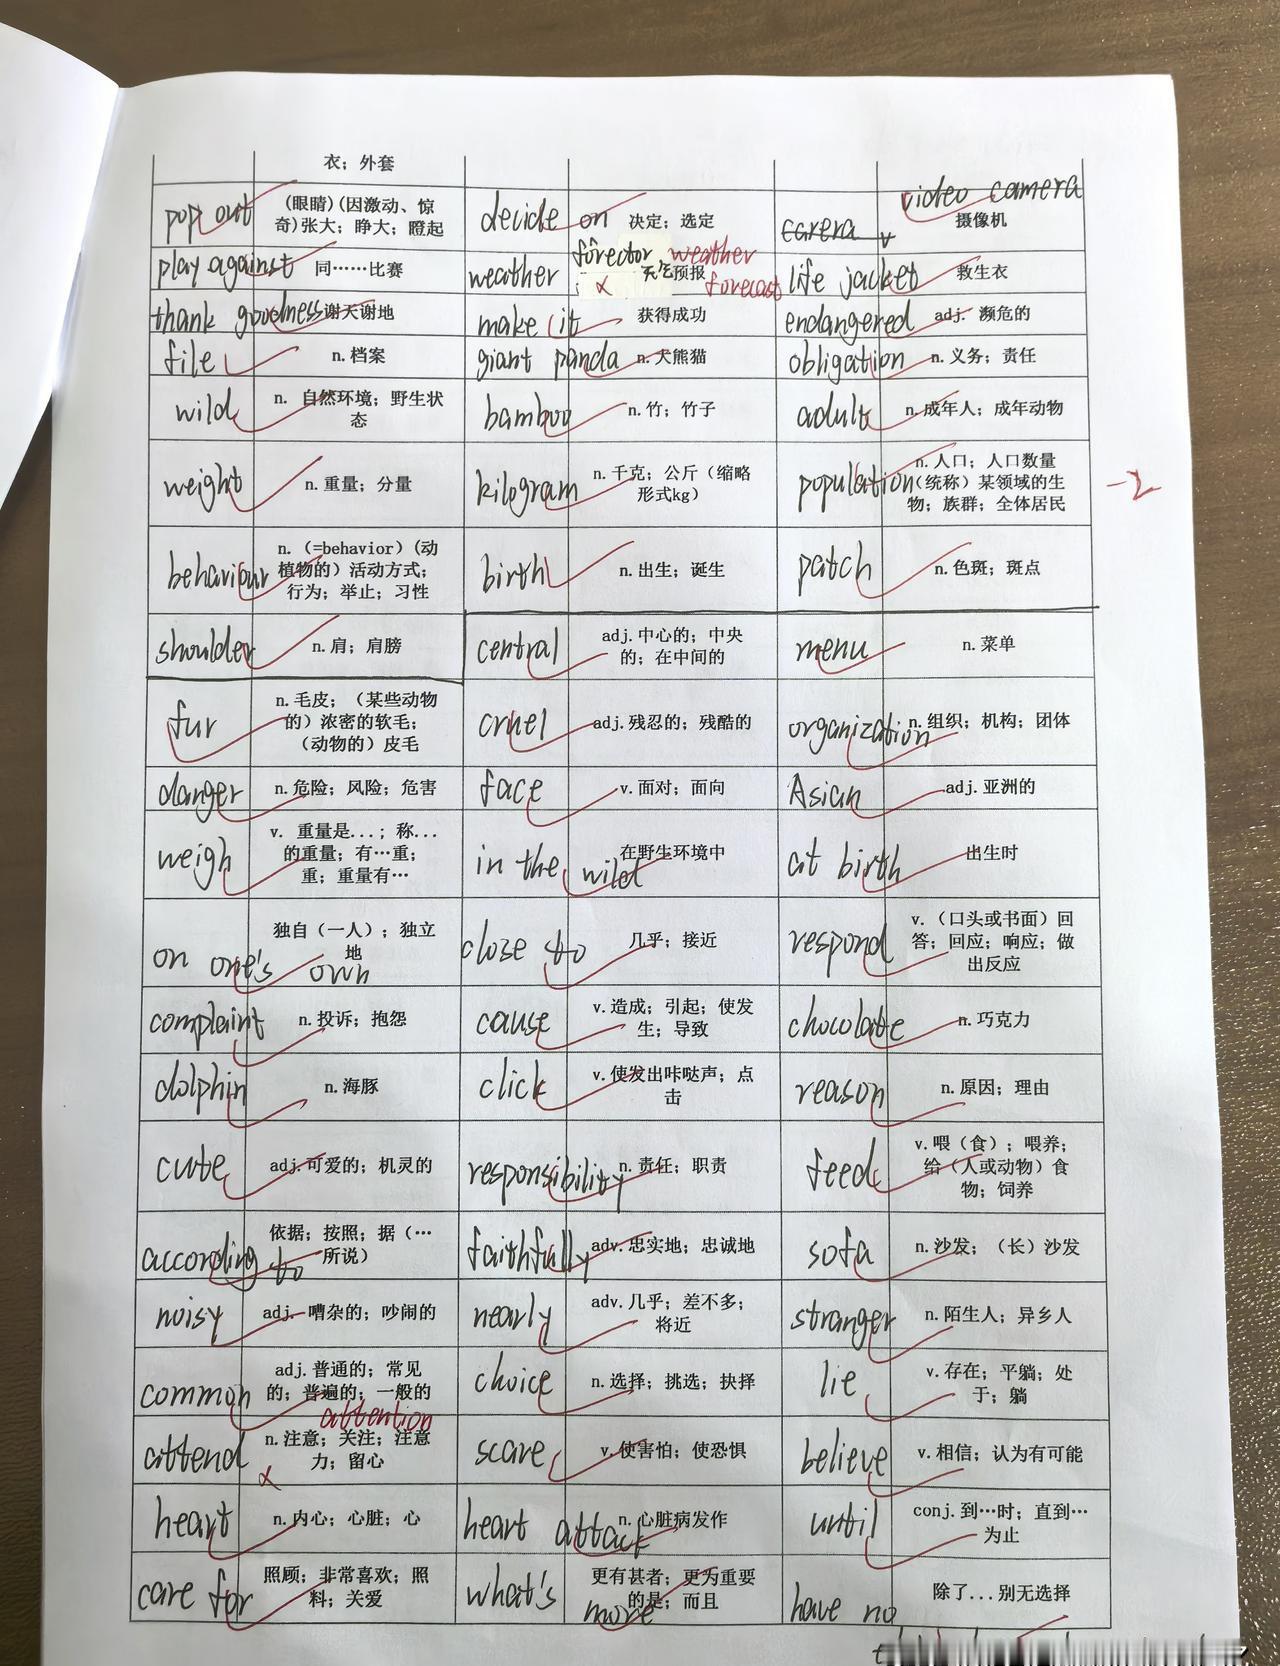 衣；外套
pop out (眼睛)(因激动、惊
奇)张大；睁大；瞪起
decide on 决定；选定
video camera
carera 摄像机
play against 同……比赛
weather 天气预报
weather
forecast
life jacket 救生衣
thank goodness 谢天谢地
make it 获得成功
endangered adj. 濒危的
file n. 档案
giant panda n. 大熊猫
obligation n. 义务；责任
wild n. 自然环境；野生状
态
bamboo n. 竹；竹子
adult n. 成年人；成年动物
weight n. 重量；分量
kilogram n. 千克；公斤（缩略
形式kg）
population n. 人口；人口数量
(统称) 某领域的生
物；族群；全体居民
-2
behaviour n. (=behavior) (动
植物的) 活动方式；
行为；举止；习性
birth n. 出生；诞生
patch n. 色斑；斑点
shoulder n. 肩；肩膀
central adj. 中心的；中央
的；在中间的
menu n. 菜单
fur n. 毛皮；（某些动物
的）浓密的软毛；
（动物的）皮毛
cruel adj. 残忍的；残酷的
organization n. 组织；机构；团体
danger n. 危险；风险；危害
face v. 面对；面向
Asian adj. 亚洲的
weigh v. 重量是...；称...
的重量；有…重；
重；重量有…
in the wild 在野生环境中
at birth 出生时
on one's own 独自（一人）；独立
地
close to 几乎；接近
respond v. （口头或书面）回
答；回应；响应；做
出反应
complaint n. 投诉；抱怨
cause v. 造成；引起；使发
生；导致
chocolate n. 巧克力
dolphin n. 海豚
click v. 使发出咔哒声；点
击
reason n. 原因；理由
cute adj. 可爱的；机灵的
responsibility n. 责任；职责
feed v. 喂（食）；喂养；
给（人或动物）食
物；饲养
according to 依据；按照；据（…
所说）
faithfully adv. 忠实地；忠诚地
sofa n. 沙发；（长）沙发
noisy adj. 嘈杂的；吵闹的
nearly adv. 几乎；差不多；
将近
stranger n. 陌生人；异乡人
common adj. 普通的；常见
的；普遍的；一般的
choice n. 选择；挑选；抉择
lie v. 存在；平躺；处
于；躺
attention
attend n. 注意；关注；注意
力；留心
scare v. 使害怕；使恐惧
believe v. 相信；认为有可能
heart n. 内心；心脏；心
heart attack n. 心脏病发作
until conj. 到…时；直到…
为止
care for 照顾；非常喜欢；照
料；关爱
what's more 更有甚者；更为重要
的是；而且
have no 除了...别无选择